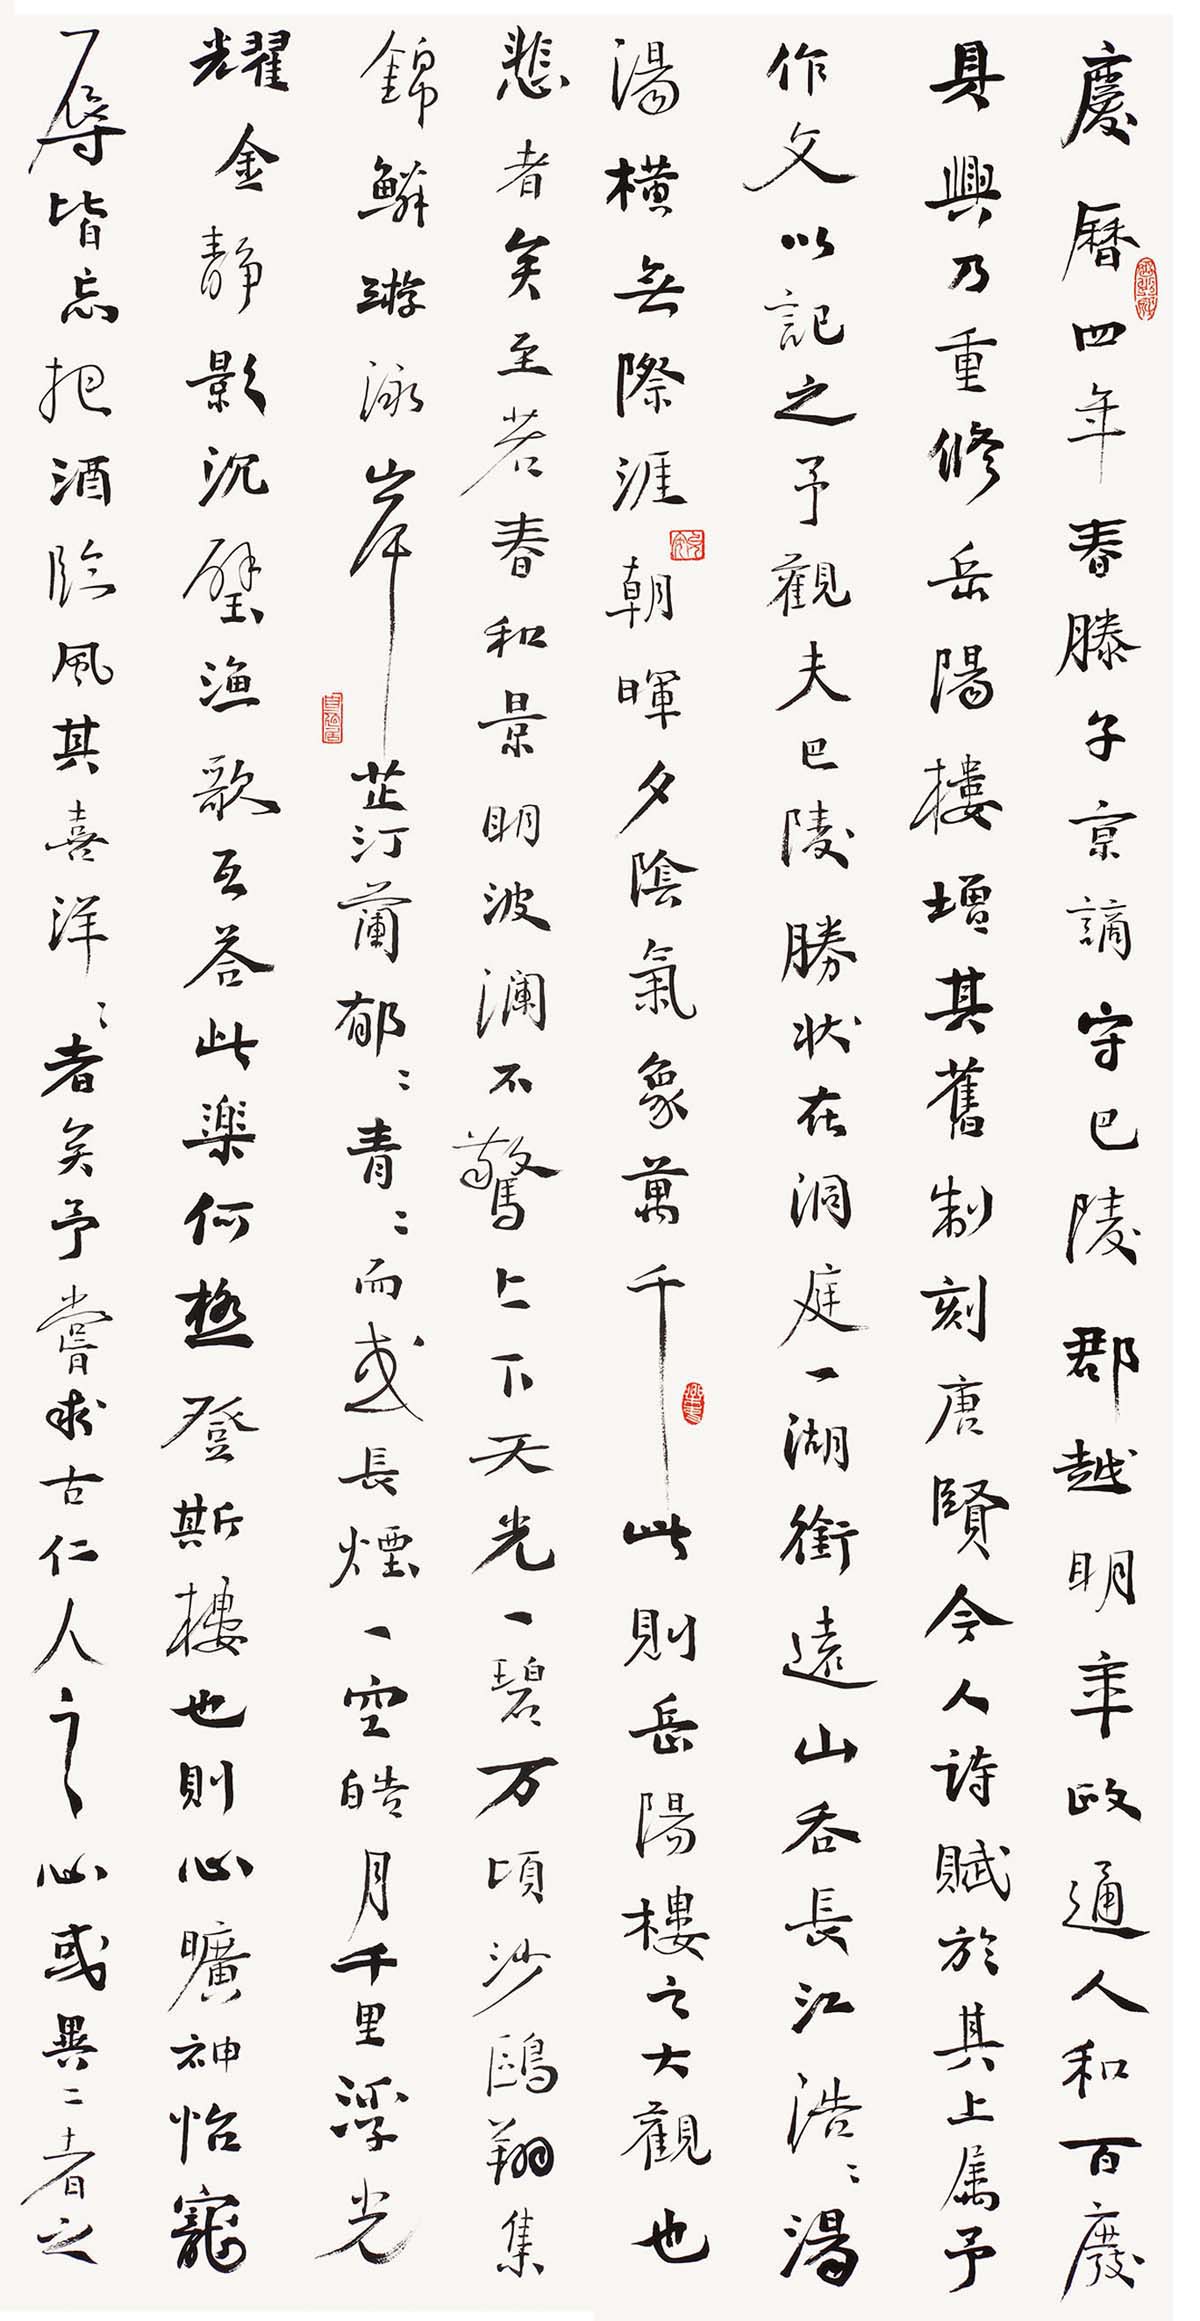 慶曆四年春滕子京謫守巴陵郡越明年政通人和百廢
具興乃重修岳陽樓增其舊制刻唐賢今人詩賦於其上属予
作文以記之予觀夫巴陵勝狀在洞庭一湖銜遠山吞長江浩〻湯
湯橫無際涯朝暉夕陰氣象萬千此則岳陽樓之大觀也
悲者矣至若春和景明波澜不驚上下天光一碧万頃沙鷗翔集
錦鱗游泳岸芷汀蘭郁〻青〻而或長煙一空皓月千里浮光
耀金静影沉璧漁歌互答此楽何極登斯樓也則心曠神怡寵
辱皆忘把酒临風其喜洋〻者矣予嘗求古仁人之心或異二者之